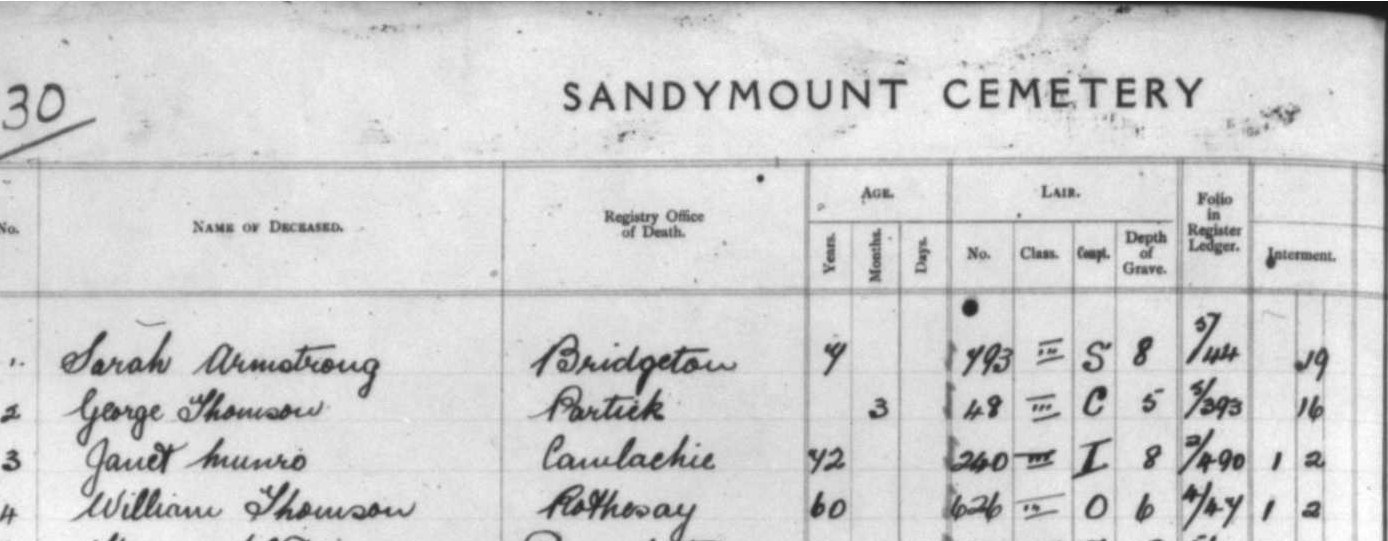 30
SANDYMOUNT CEMETERY
No. NAME OF DECEASED. Registry Office of Death. AGE. Years. Months. Days. LAIR. No. Class. Compt. Depth of Grave. Folio in Register Ledger. Interment.
1. Sarah Armstrong Bridgeton 7 793 III S 8 5/44 19
2 George Thomson Partick 3 48 III C 5 5/393 16
3 Janet Munro Camlachie 72 240 III I 8 2/490 1 2
4 William Thomson Rothesay 60 626 O 6 4/47 1 2